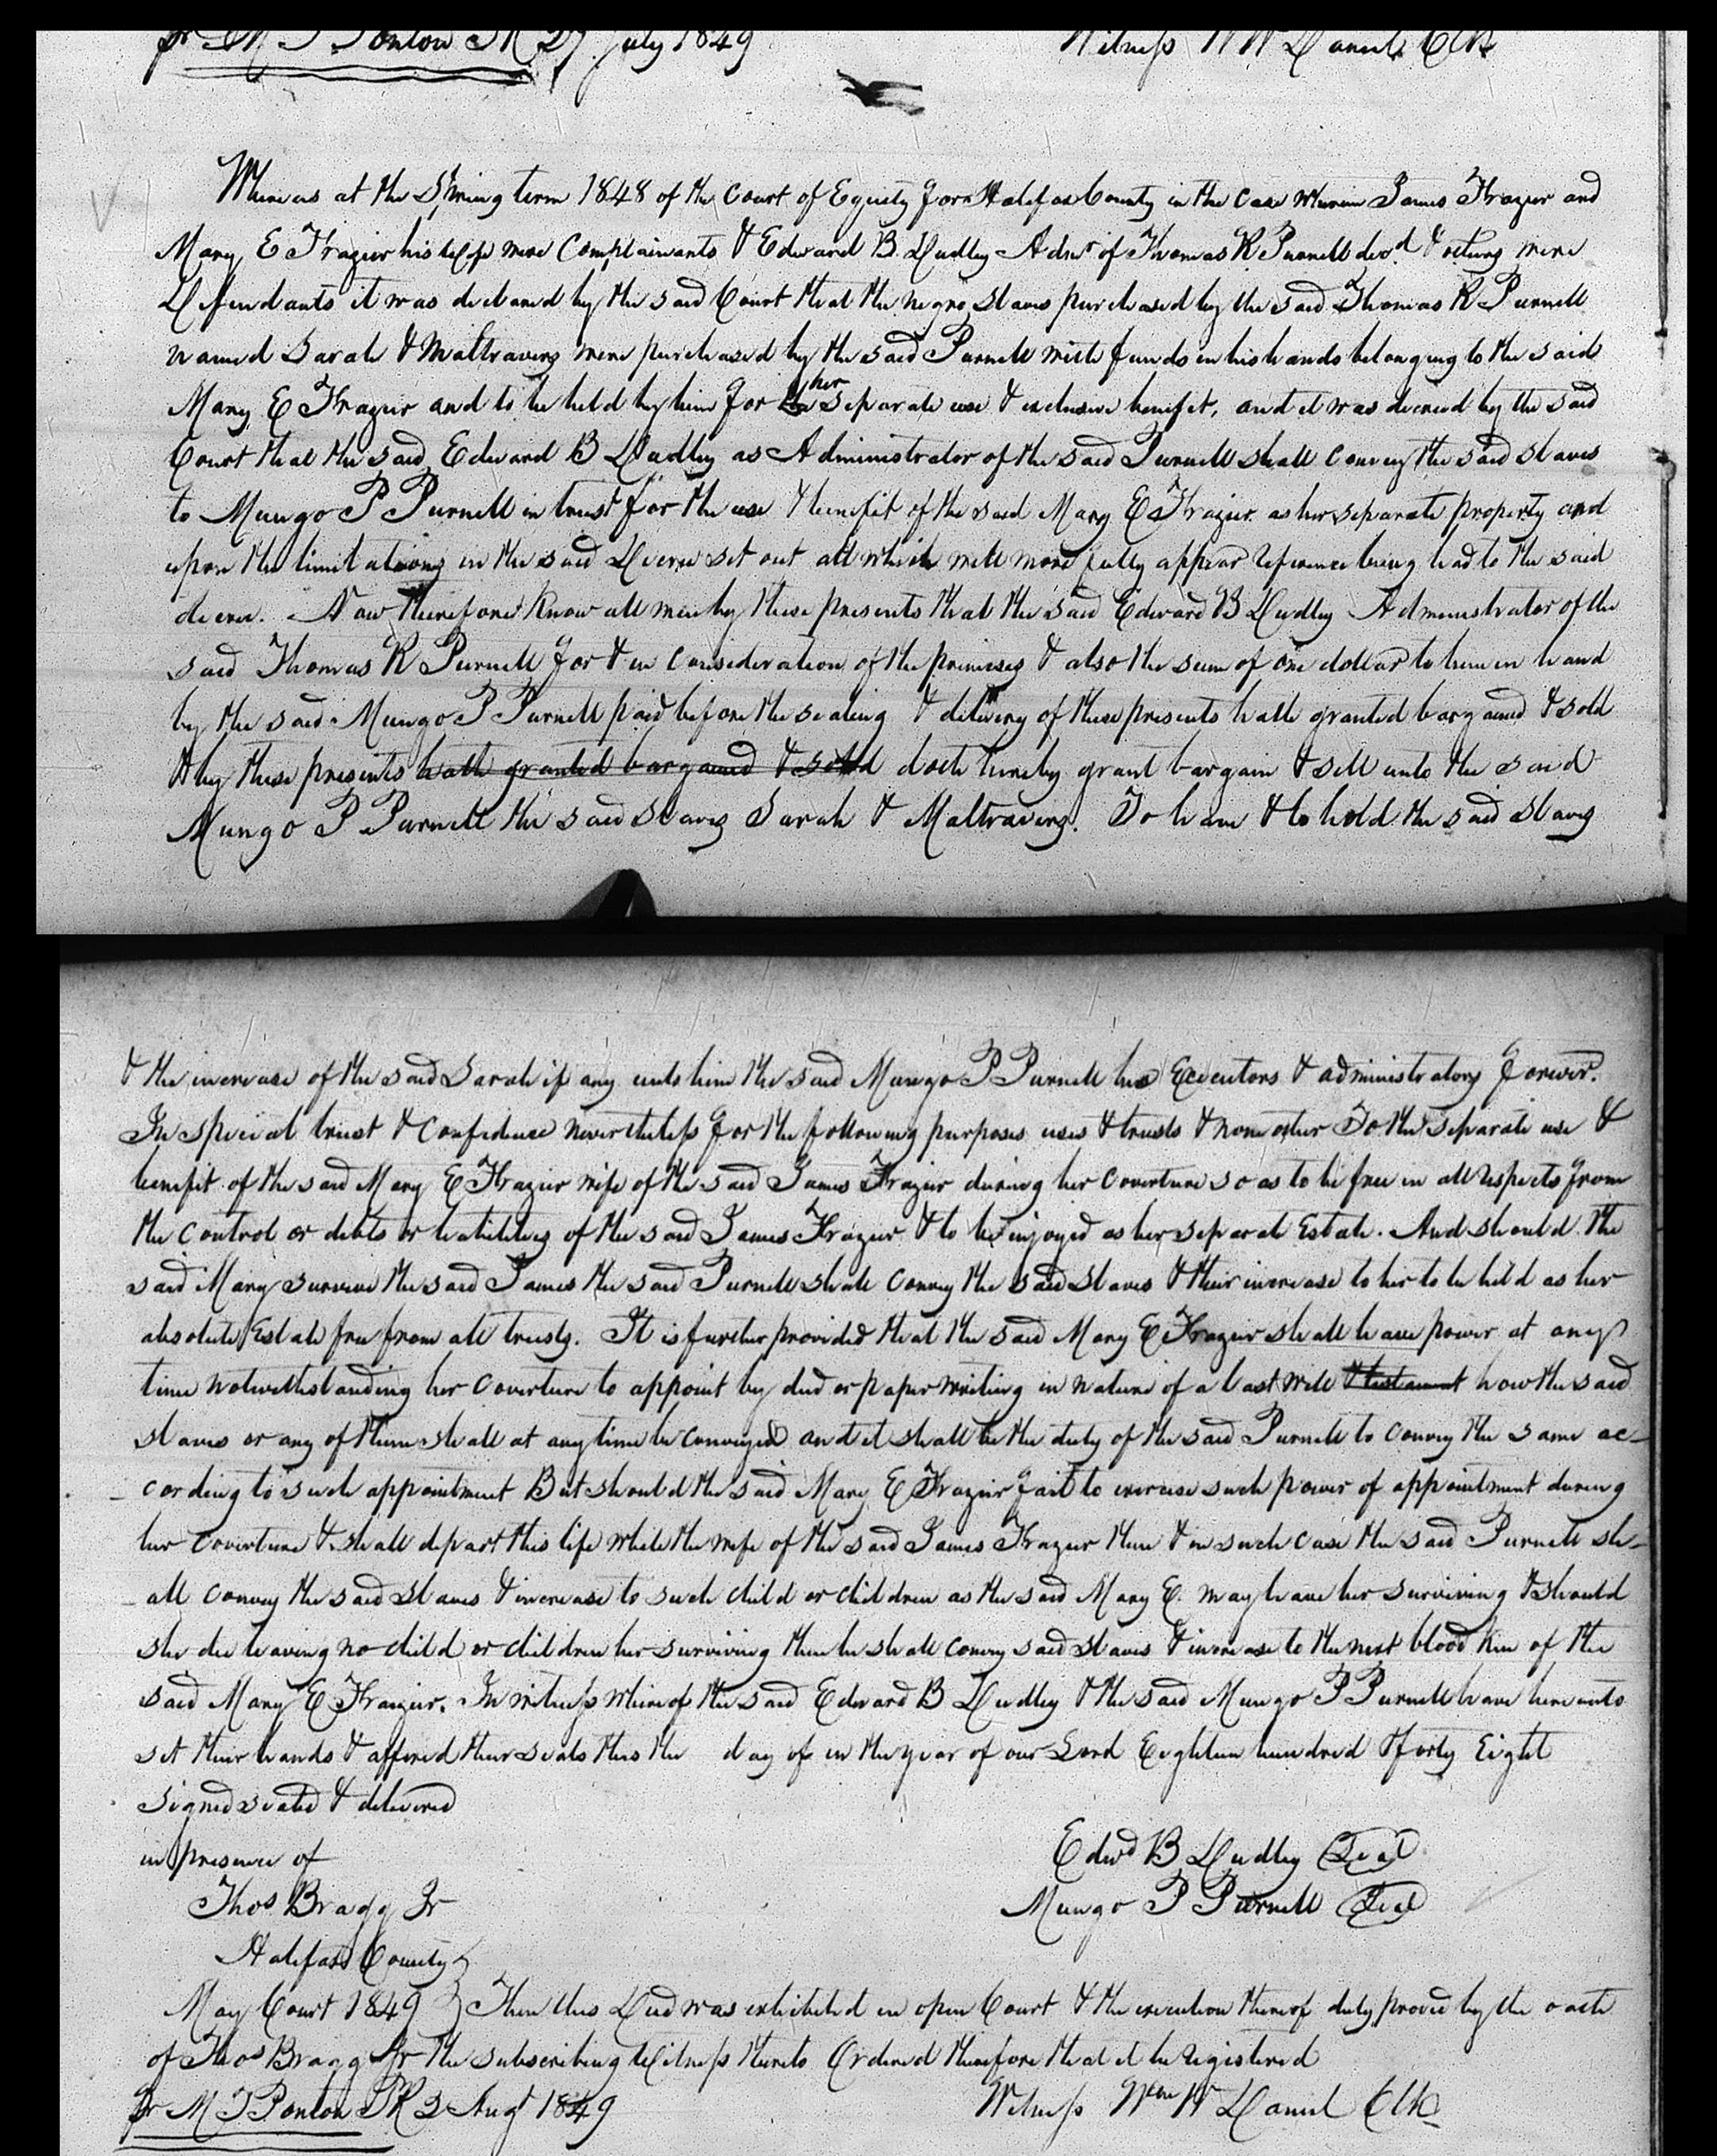 pr M T Ponton PR 27 July 1849 Witness W W Daniel Clk
Whereas at the Spring term 1848 of the Court of Equity for Halifax County in the case wherein James Frazier and
Mary E Frazier his wife were Complainants & Edward B. Dudley Admr of Thomas R Purnell decd & others were
Defendants it was declared by the said Court that the negro Slaves purchased by the said Thomas R Purnell
named Sarah & Maltravers were purchased by the said Purnell with funds in his hands belonging to the said
Mary E Frazier and to be held by him for the her separate use & exclusive benefit, and it was decreed by the said
Court that the said Edward B Dudley as Administrator of the said Purnell shall convey the said slaves
to Mungo P Purnell in trust for the use & benefit of the said Mary E Frazier as her separate property and
upon the limitations in the said Decree set out all which will more fully appear reference being had to the said
decree. Now therefore Know all men by these presents that the said Edward B Dudley Administrator of the
said Thomas R Purnell for & in consideration of the premises & also the sum of one dollar to him in hand
by the said Mungo P Purnell paid before the sealing & delivery of these presents hath granted bargained & sold
& by these presents hath granted bargained & sold doth hereby grant bargain & sell unto the said
Mungo P Purnell the said slaves Sarah & Maltravers. To have & to hold the said slaves
& the increase of the said Sarah if any unto him the said Mungo P Purnell his Executors & administrators forever.
In special trust & confidence nevertheless for the following purposes uses & trusts & none other To the separate use &
benefit of the said Mary E Frazier wife of the said James Frazier during her coverture so as to be free in all respects from
the control or debts or liabilities of the said James Frazier & to be enjoyed as her separate Estate. And should the
said Mary survive the said James the said Purnell shall convey the said slaves & their increase to her to be held as her
absolute Estate free from all trusts. It is further provided that the said Mary E Frazier shall have power at any
time notwithstanding her coverture to appoint by deed or paper writing in nature of a last will & testament how the said
slaves or any of them shall at any time be conveyed and it shall be the duty of the said Purnell to convey the same ac-
cording to such appointment But should the said Mary E Frazier fail to exercise such power of appointment during
her coverture & shall depart this life while the wife of the said James Frazier then & in such case the said Purnell sh-
all convey the said slaves & increase to such child or children as the said Mary E. may leave her surviving & should
she die leaving no child or children her surviving then he shall convey said slaves & increase to the next blood kin of the
said Mary E Frazier. In witness whereof the said Edward B Dudley & the said Mungo P Purnell have hereunto
set their hands & affixed their seals this the day of in the year of our Lord Eighteen hundred & forty Eight
Signed sealed & delivered
in presence of
Edwd B Dudley Seal
Thos Bragg Jr
Mungo P Purnell Seal
Halifax County
May Court 1849 } Then this Deed was exhibited in open Court & the execution thereof duly proved by the oath
of Thos Bragg Jr the subscribing Witness thereto Ordered therefore that it be registered
pr M T Ponton PR 2 Augt 1849 Witness Wm W Daniel Clk